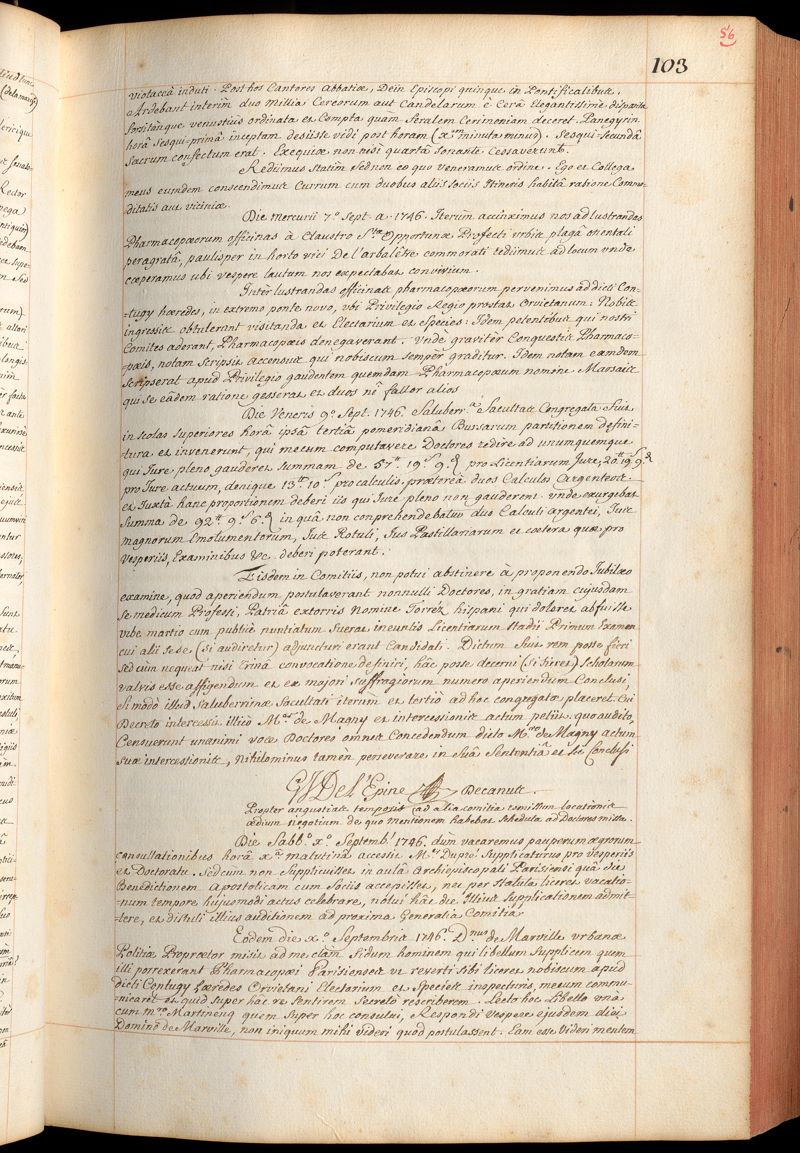 56
103
violaceâ induti. Post hos Cantores abbatiæ, Dein Episcopi quinque in Pontificalibus.
Ardebant interim duo millia Cereorum aut Candelarum è Cerâ Elegantissimè disparita
forsitanque venustiùs ordinata et Compta quam feralem Cerimoniam deceret. Panegyrin
horâ sesqui-primâ inceptam desiisse vidi post horam (xem minuta minus). Sesqui-secundâ
sacrum confectum erat. Exequiæ non nisi quartâ sonante Cessaverunt.
Rediimus Statim sed non eo quo veneramus ordine. Ego et Collega
meus eumdem conscendimus Currum cum duobus aliis sociis Itineris habitâ ratione Commo-
ditatis aut viciniæ.
Die mercurii 7.º Sept. a. 1746. Iterùm accinximus nos ad lustrandas
Pharmacopæorum officinas à Claustro Stæ Opportunæ Profecti urbis plagâ orientali
peragratâ, paulisper in horto vici De l'arbalêtre commorati rediimus ad locum unde
cœperamus ubi vespere lautum nos expectabat convivium.
Inter lustrandas officinas pharmacopæorum pervenimus ad dicti Con-
-tugy hæredes, in extremo ponte novo, ubi Privilegio Regio prostat orvietanum. Nobis
ingressis obtulerant visitanda et Electarium et species. Idem petentibus qui nostri
Comites aderant, Pharmacopæis denegaverant. Undè gravitèr Conquestis Pharmaco-
-pæis, notam scripsit accensus qui nobiscum semper graditur. Idem notam eamdem
scripserat apud Privilegio gaudentem quemdam Pharmacopæum nomine Marsais
qui se eâdem ratione gesserat et duos ni fallor alios
Die Veneris 9.º Sept. 1746. Saluberr.a facultas Congregata fuit
in scolas superiores horâ ipsâ tertiâ pomeridianâ Bursarum partitionem defini-
tura et invenerunt, qui mecum computavere Doctores redire ad unumquemque
qui Jure pleno gauderet summam de 57tt. 19s. 9.d pro Licentiarum Jure, 20tt 19s 9.d
pro Jure actuum, denique 13tt 10s pro calculis, præterea duos Calculos Argenteos
et Juxtà hanc proportionem deberi iis qui Jure pleno non gauderent. unde exurgebat
summa de 92tt. 9s. 6d. in quâ non conprehendebatur duo Calculi argentei, Jus
magnorum Emolumentorum, Jus Rotuli, Jus Pastillariarum et cœtera quæ pro
vesperiis, Examinibus &c. deberi poterant.
Eisdem in Comitiis, non potui abstinere à proponendo Jubilæo
examine, quod aperiendum postulaverant nonnulli Doctores, in gratiam cujusdam
se medicum Professi, Patriâ extorris nomine Torréz hispani qui doleret abfuisse
urbe martio cum publicè nuntiatum fuerat ineuntis Licentiarum stadii Primum Examen
cui alii sese (si audiretur) adjuncturi erant Candidati. Dictum fuit rem posse fieri
sed cùm nequeat nisi trinâ convocatione definiri, hâc posse decerni (si fieret) scholarum
valvis esse affigendum et ex majori suffragiorum numero aperiendum Conclusi,
si modò illud saluberrimæ facultati iterùm et tertiò ad hoc congregatæ placeret. Cui
Decreto intercessit illicò Mer de Magny et intercessionis actum petiit. quo audito
Censuerunt unanimi voce Doctores omnes Concedendum dicto Mro de Magny actum
suæ intercessionis, nihilominus tamèn perseverare in suâ sententiâ et sic Conclusi
GJDel'Epine Decanus.
Propter angustias temporis ad alia comitia comissum locationis
ædium negotium de quo mentionem habebat schedula ad Doctores missa.
Die Sabb.º x.º Septemb.! 1746. dùm vacaremus pauperum ægrorum
consultationibus horâ xâ matutinâ accessit Mer Dupré Supplicaturus pro vesperiis
et Doctoratu. sed cum non supplicuisset in aulâ Archiepiscopali Parisiensi quâ die
Benedictionem apostolicam cum sociis accepisset, nec per statuta liceret vacatio-
num tempore hujusmodi actus celebrare, nolui hâc die Illius supplicationem admit-
tere, et distuli illius auditionem ad proxima Generalia Comitia.
Eodem die x.º Septembris 1746. Dnus de Marville urbanæ
Politiæ Proprætor misit ad me clàm fidum hominem qui libellum supplicem quem
illi porrexerant Pharmacopæi Parisienses ut reverti sibi liceret nobiscum apud
dicti Contugy hæredes Orvietani Electarium et Species inspecturis, mecum commu-
nicaret et quid super hâc re sentirem secretò rescriberem. Lecto hoc Libello una
cum mro Martinenq quem super hoc consului, Respondi vespere ejusdem diei
Domino de Marville, non iniquum mihi videri quod postulassent. Eam esse videri mentem